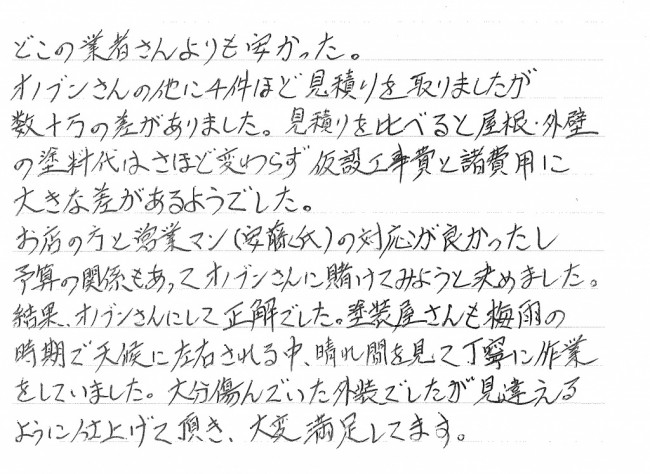 どこの業者さんよりも安かった。
オノブンさんの他に4件ほど見積りを取りましたが
数十万の差がありました。見積りを比べると屋根・外壁
の塗料代はさほど変わらず仮設工事費と諸費用に
大きな差があるようでした。
お店の方と営業マン(安藤氏)の対応が良かったし
予算の関係もあってオノブンさんに賭けてみようと決めました。
結果、オノブンさんにして正解でした。塗装屋さんも梅雨の
時期で天候に左右される中、晴れ間を見て丁寧に作業
をしていました。大分傷んでいた外装でしたが見違える
ように仕上げて頂き、大変満足してます。